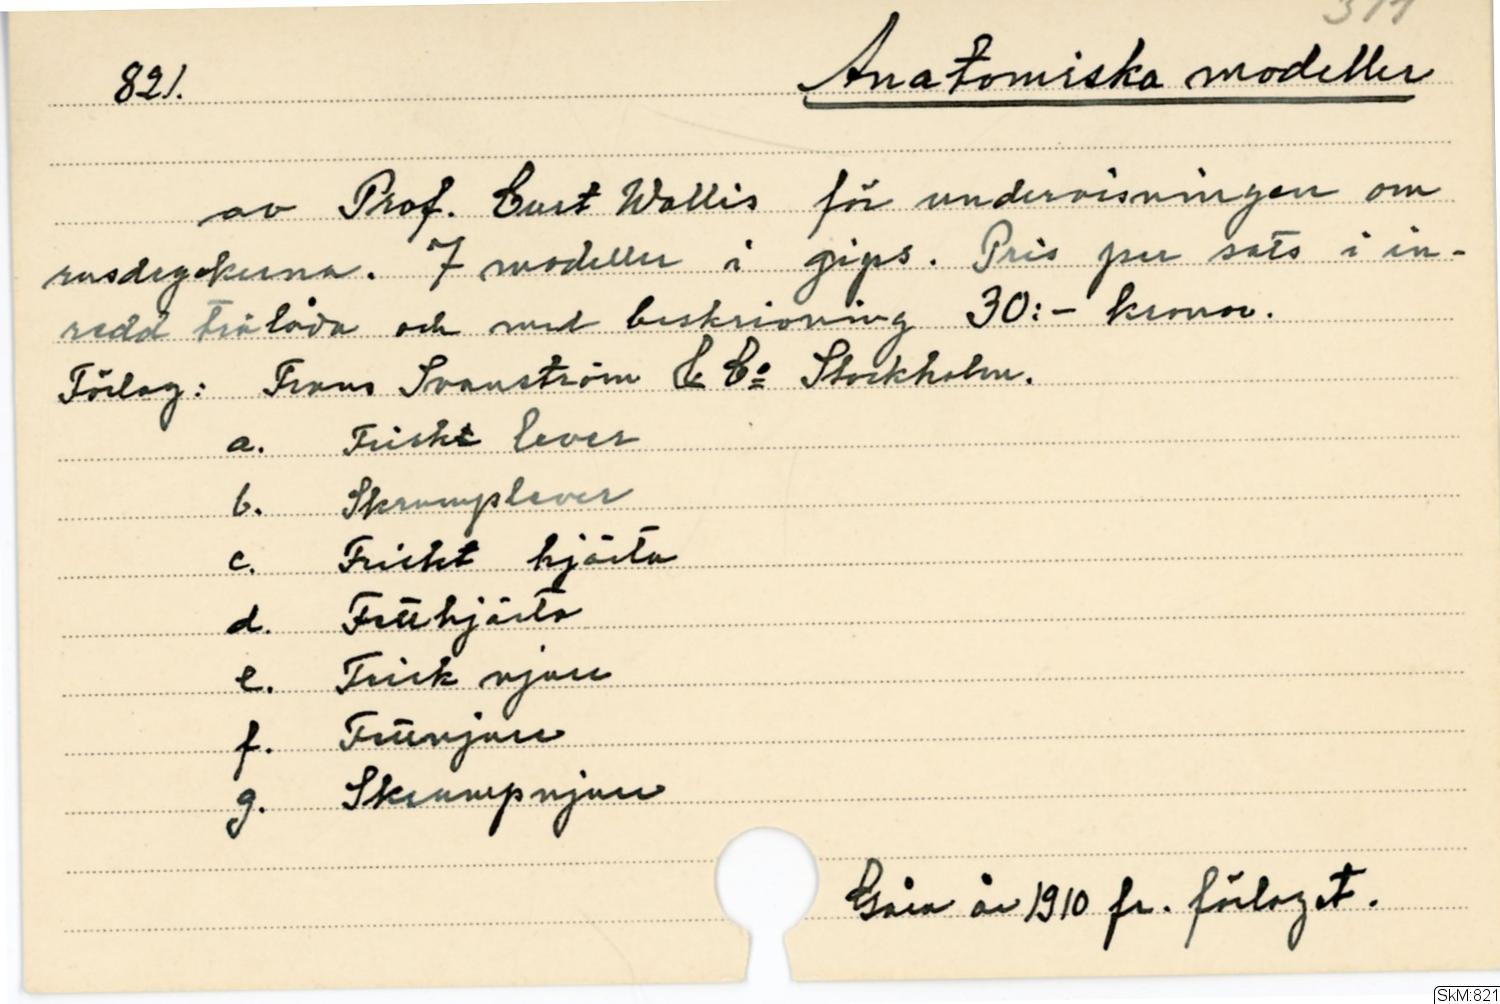 311
821.
Anatomiska modeller
av Prof. Curt Wallis för undervisningen om
rusdryckerna. 7 modeller i gips. Pris per sats i in-
redd trälåda och med beskrivning 30:- kronor.
Förlag: Frans Svanström & Co Stockholm.
a. Friskt lever
b. Skrumplever
c. Friskt hjärta
d. Fetthjärta
e. Frisk njure
f. Fettnjure
g. Skrumpnjure
Gåva år 1910 fr. förlaget.
SkM:821